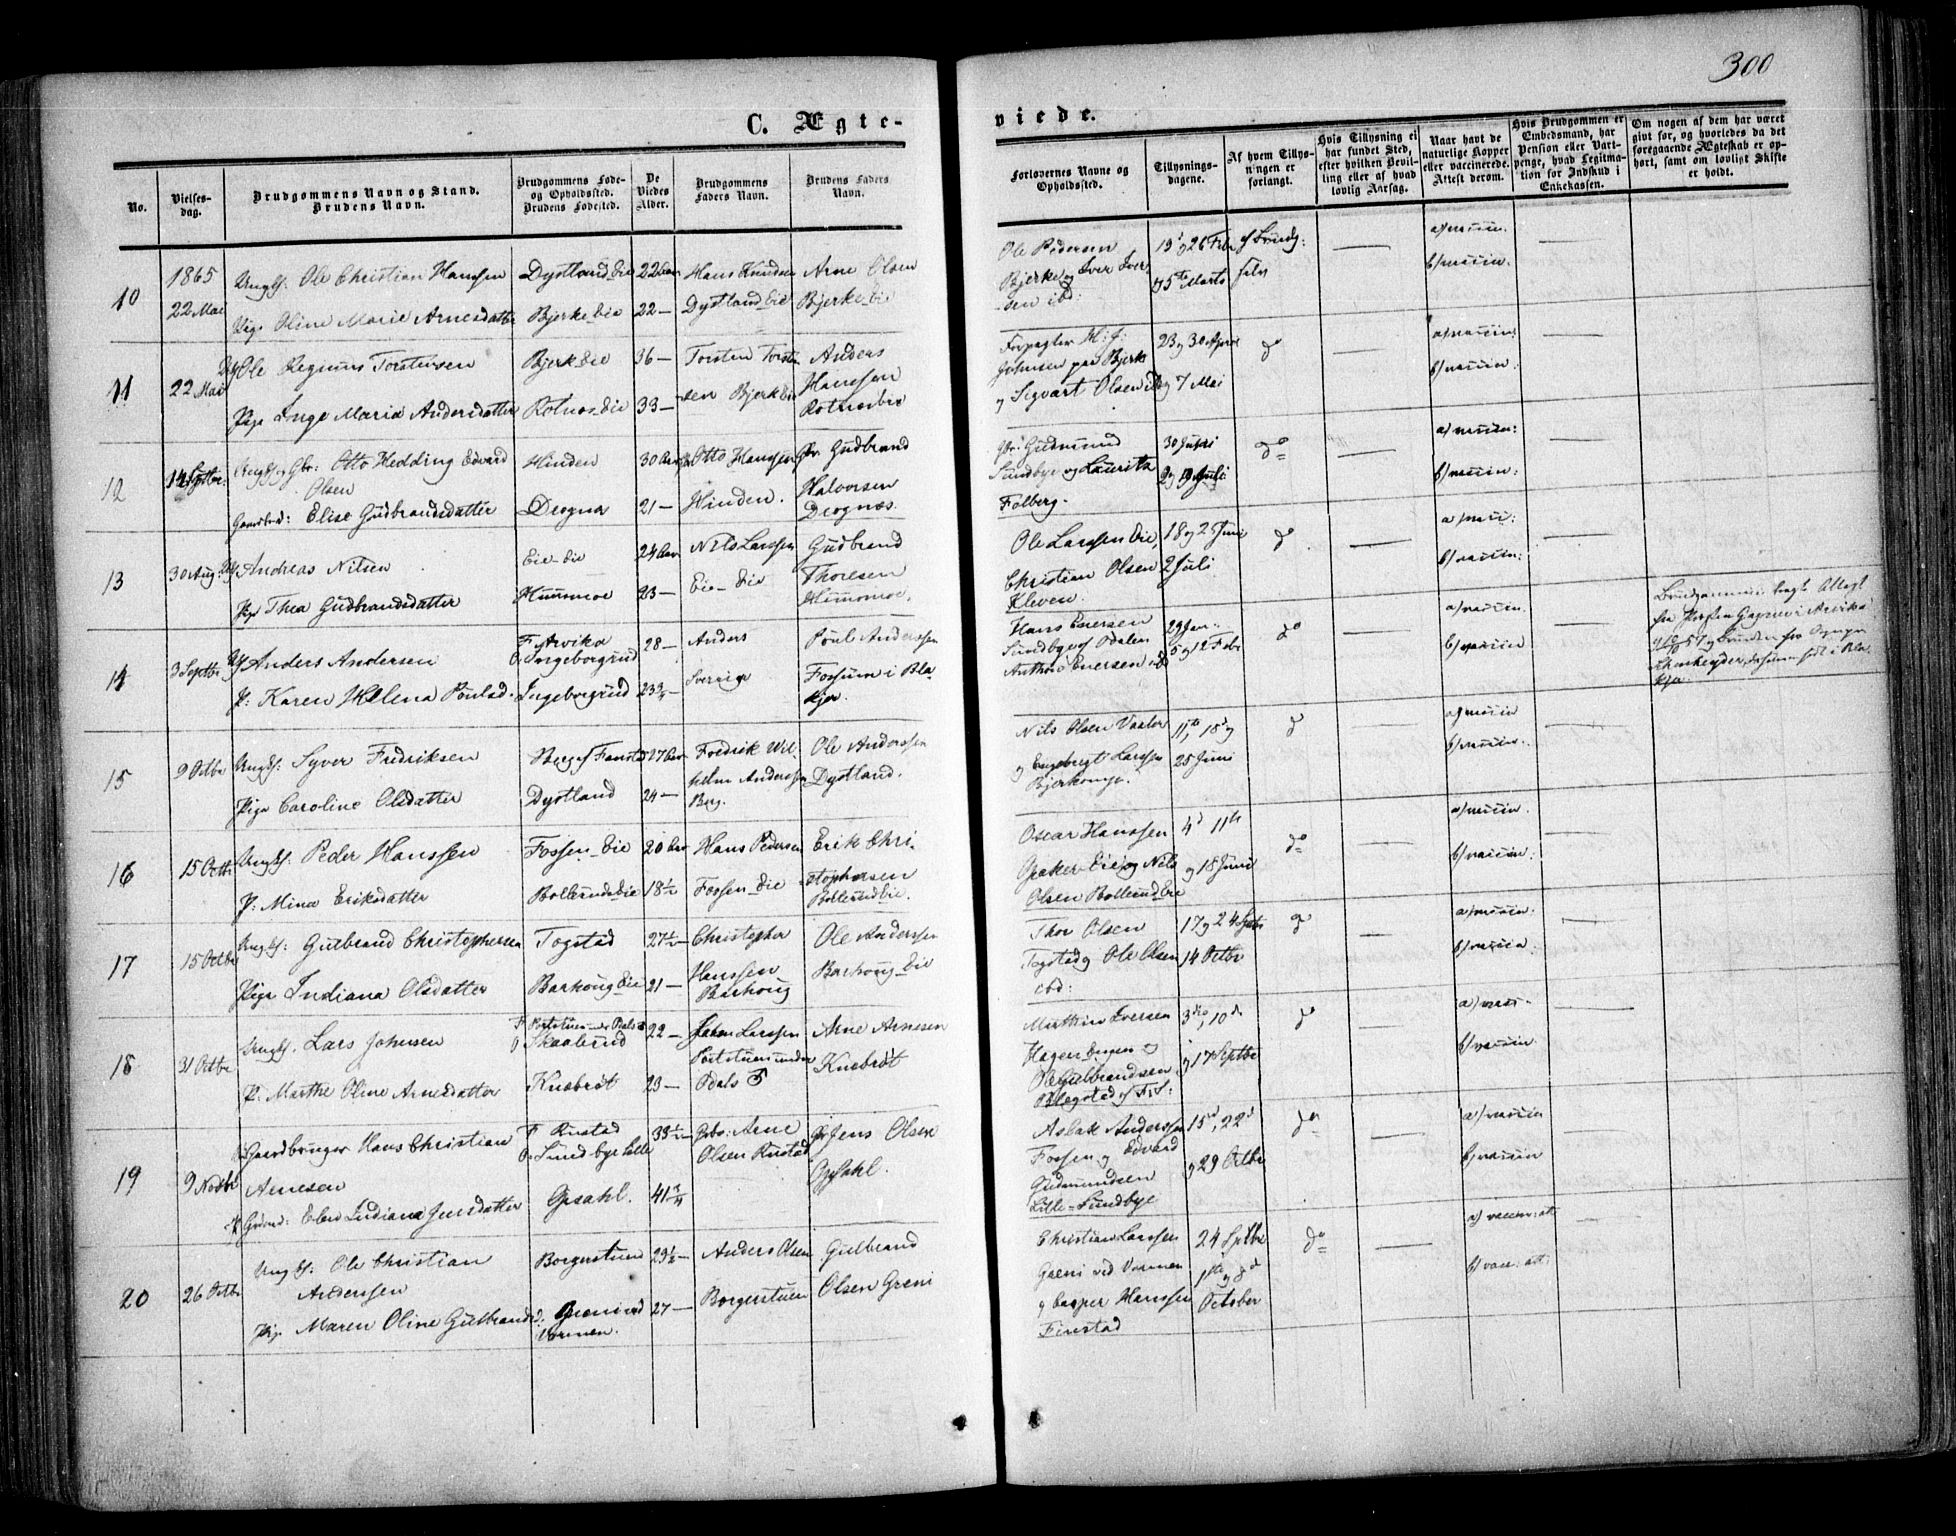 300
C. Ægte-
viede.
No.
Vielses-
dag.
Brudgommens Navn og Stand.
Brudens Navn.
Brudgommens Føde-
og Opholdssted.
Brudens Fødested.
De
Viedes
Alder.
Brudgommens
Faders Navn.
Brudens Faders
Navn.
Forlovernes Navne og
Opholdssted.
Tillysnings-
dagene.
Af hvem Tillys-
ningen er
forlangt.
Hvis Tillysning ei
har fundet Sted,
efter hvilken Bevil-
ling eller af hvad
lovlig Aarsag.
Naar havt de
naturlige Kopper
eller vaccinerede.
Attest derom.
Hvis Brudgommen er
Embedsmand, har
Pension eller Vart-
penge, hvad Legitima-
tion for Indskud i
Enkekassen.
Om nogen af dem har været
gift før, og hvorledes da det
foregaaende Ægteskab er op-
hørt, samt om lovligt Skifte
er holdt.
10
1865
22 Mai
Ungk: Ole Christian Hanssen
Pige Oline Marie Arnesdatter
Dystland Eie
Bjerke Eie
22 Aar
22 —
Hans Knudsen
Dystland Eie
Arne Olsen
Bjerke Eie
Ole Pedersen
Bjerke og Iver Iver
sen ibd:
19 og 26 Febr
og 5te Marts
af Brudg:
selv
a) vaccin.
b) vaccin.
11
22 Mai
Ole Torstensen
Pige Inge Maria Andersdatter
Bjerk Eie
Rotnes Eie
36 —
33 —
Torsten Torste
sen Bjerk Eie
Anders
Hanssen
Rotnes Eie
Johnsen paa Bjerk
og Sigvart Olsen
23 og 30 April
og 7 Mai
do
a) vaccin:
b) vaccin:
12
14 Septbr
Ungk og Gbr: Otto Hedding Edvard
Olsen
Gaardbd: Elise Gudbrandsdatter
Hinden
Drognæs
30 Aar
21 —
Otto Hanssen
Hinden.
Gbr. Gudbrand
Halvorsen
Drognæs.
Gbr: Gudmund
Sundbye og Lauritz
Folberg.
2 og 9 Juli
do
a) vaccin:
b) vaccin:
13
30 Aug:
Andreas Nilsen
Pige Thea Gudbrandsdatter
Eie-Eie
Hummoe
24 Aar
23 —
Nils Larssen
Eie-Eie
Gudbrand
Thoresen
Hummoe.
Ole Larssen Eie,
Christian Olsen
Kleven.
18 og 25 Juni
2 Juli
do
a) vacci:
b) vaccin:
14
3 Septbr
Anders Andersen
P: Karen Helena Poulsd.
F. Arvika
O. Ingeborgrud
Ingeborgrud
28 —
23 3/4 —
Anders
Sverrige
Poul Anderssen
Fossum i Bla
kjer.
Hans Enersen
Sundbye af Odalen
Anthon Enersen ibd
29 Jan:
5 og 12 Febr
do
a) vaccin.
b) vaccin
15
9 Octbr
Ungk: Syver Fredriksen
Pige Caroline Olsdatter
Berg af Fenstad
Dystland
27 Aar
24 —
Fredrik Wil
helm Anderssen
Berg.
Ole Anderssen
Dystland.
Nils Olsen Vaaler
og Engebregt Larssen
11te, 18d og
25 Juni
do
a) vaccin
b) vaccin.
16
15 Octbr
Ungk: Peder Hanssen
P: Mina Eriksdatter
Fossen-Eie
Bollerud Eie
20 Aar
18 1/2 —
Hans Pedersen
Fossen-Eie
Erik Chri-
stophersen
Bollerud Eie.
Oscar Hanssen
Opaker-Eie og Nils
Olsen Bollerud Eie
4d 11te
og 18 Juni
do
a) vaccin.
b) vaccin:
17
15 Octbr
Ungk: Gulbrand Christophersen
Pige Indiana Olsdatter
Togstad
Barhoug Eie
27 1/2 —
21 —
Christopher
Hanssen
Barhoug
Ole Anderssen
Barhoug-Eie
Thor Olsen
Togstad og Ole Olsen
ibd:
17 og 24 Septbr
14 Octbr
do
a) vaccin:
b) vaccin
18
31 Octbr
Ungk. Lars Johnsen
P: Marthe Oline Arnesdatter
Skaabrud
Knebrot
22 —
23 —
Johan Larssen
Odals
Arne Arnesen
Knebrot
Mathia Iversen
Hagen
Gulbrandsen
3die, 10de
og 17 Septbr
do
a) vacc.
b) vaccin.
19
9 Novbr
Gaardbruger Hans Christian
Arnesen
P. Gaard: Elen Indiana Jensdatter
F Rustad
O. Sundbye Lille
Opsahl.
33 1/2 —
41 3/4
Gbr: Arne
Olsen Rustad
Gbr Jens Olsen
Opsahl.
Aslak Anderssen
Fossen og Edvard
Gudmundsen
Lille-Sundbye
15d, 22d
og 29 Octbr
do
a) vaccin
b) vaccin
20
26 Octbr
Ungk: Ole Christian
Anderssen
Pige Maren Oline Gulbrandsd.
Borgerstuen
Greni ved
Vormen.
29 1/2 —
27 —
Anders Olsen
Borgerstuen
Gulbrand
Olsen Greni
Christian Larssen
Greni ved Vormen
og Casper Hanssen
Finstad
24 Septbr
1ste og 8d
October
do
a) vaccin: att
b) vacc: att.